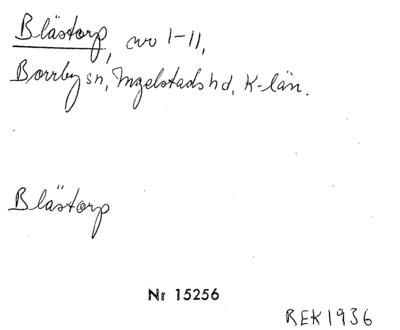 Blästorp, cvo 1-11,
Borrby sn, Ingelstads hd, K-län.
Blästorp
Nr 15256
REK 1936